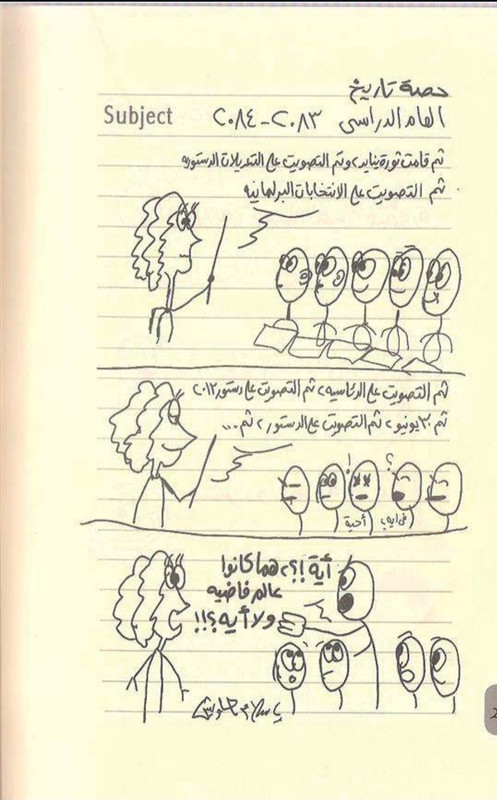 حصة تاريخ
Subject العام الدراسى ٢٠٨٣-٢٠٨٤
ثم قامت ثورة يناير، وتم التصويت على التعديلات الدستوريه
ثم التصويت على الانتخابات البرلمانيه
ثم التصويت على الرئاسيه، ثم التصويت على دستور ٢٠١٢
ثم ٣٠ يونيو، ثم التصويت على الدستور، ثم...
!
؟
أحية
أية !؟، هما كانوا
عالم فاضيه
ولا أيه ؟!!
2